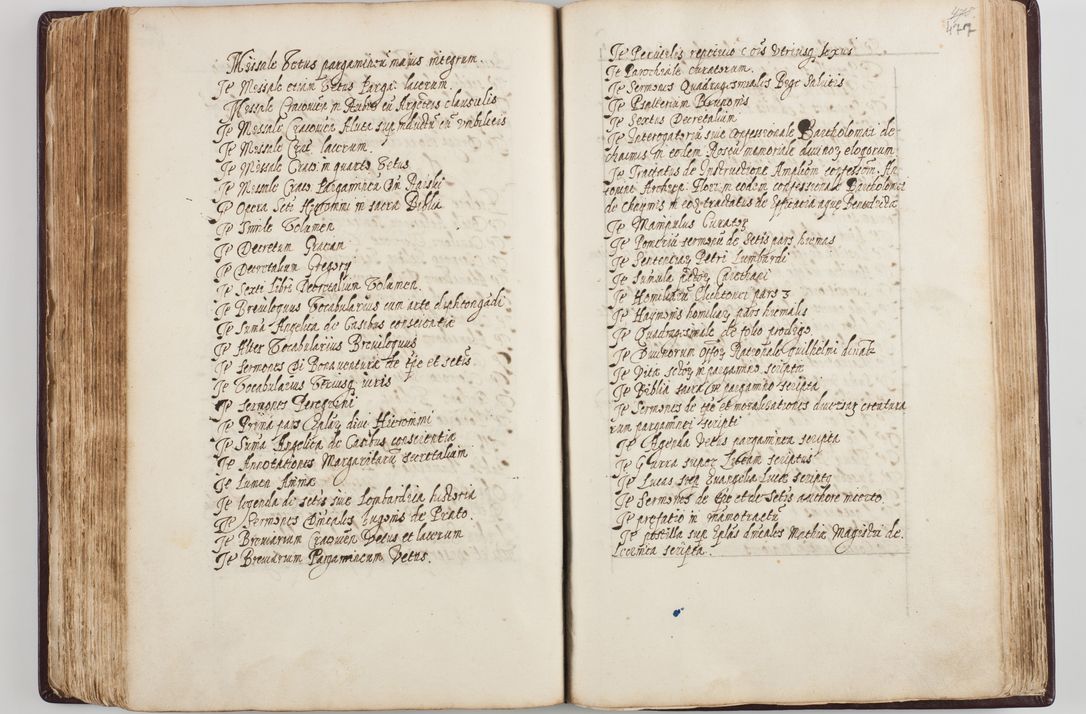 Missale Vetus pargamineũ maius integrum.
Itẽ Missale etiam Vetus Parga: lacerum.
Missale Cracovien in Rubro cũ Argẽteis clausulis
Itẽ Missale Cracovien cũ umbilicis
Itẽ Missale Crac: lacerum.
Itẽ Missale Craco: in quarto Vetus
Itẽ Missale Craco: Pargamineũ Dñi Raiski
Itẽ Opera Scti Hieronimi in sacra Biblia
Itẽ Simile Volumen
Itẽ Decretum Gracian
Itẽ Decretalium Gregorij
Itẽ Sexti libri Decretalium Volumen.
Itẽ Breviloquus Vocabularius cum arte diphtongãdi
Itẽ Suma Angelica de Casibus conscientiæ
Itẽ Alter Vocabularius Breviloquus
Itẽ Sermones Di Bonaventuræ de tpe et sctis
Itẽ Vocabularius Utriusq iuris
Itẽ Sermones Peregrini
Itẽ Prima pars Eplaꝝ divi Hieronimi
Itẽ Suma Angelica de Casibus conscientiæ
Itẽ Annotationes Margaritarũ Decretalium
Itẽ Lumen Animæ
Itẽ legenda de sctis sive Lombardica historia
Itẽ Sermones Dñicales hugonis de Prato.
Itẽ Breviarium Cracovien Vetus et lacerum
Itẽ Breviarium Pargamineum Vetus.
477
Itẽ Perutilis repeticio c: ois utriusq sexus
Itẽ Parochiale Curatorum.
Itẽ Sermones Quadragesimales Bige Salutis
Itẽ Psalterium Brunonis
Itẽ Sextus Decretalium
Itẽ Interogatoriũ sive Confessionale Bartholomæi de
chaimis in eodem Roseũ memoriale divinoꝝ eloqorum
Itẽ Tractatus de Instructione simplicium confessorum. An
tonini Archiepi: Floren: eodem confessionale Bartholomei
de chaymis in eoꝝ tractatus de Efficacia aque Benedictæ
Itẽ Manipulus Curatoꝝ
Itẽ Pomeriũ sermonũ de Sctis pars hiemas
Itẽ Sentenciaꝝ Petri Lumbardi
Itẽ Sumula Caiethani
Itẽ Homiliarũ Clichtovei pars 3
Itẽ Haymonis homiliaꝝ pars hiemalis
Itẽ Quadragesimale de filio prodigo
Itẽ Divinorum offoꝝ Rationale Guilhelmi
Itẽ Vita sctoꝝ in pargamino scripta
Itẽ Biblia sacra in pargamino scripta
Itẽ Sermones de tpe et moralisationes diversaꝝ creatura
rum pargaminei scripti
Itẽ Agenda Vetus pargaminea scripta
Itẽ Gorra super scriptus
Itẽ Lucas Evangelia Lucæ scripto
Itẽ Sermones de tpe et de Sctis authore incerto
Itẽ prefatio in mamotractũ
Itẽ postilla sup Eplas dñicales Mathiæ Magistri de
scripta.